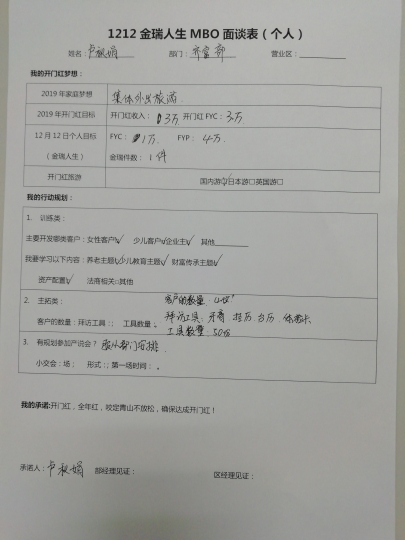 1212 金瑞人生 MBO 面谈表（个人）
姓名：卢秋娟 部门： 营业区：
我的开门红梦想：
2019 年家庭梦想 集体外出旅游.
2019 年开门红目标 开门红收入： 3万 开门红 FYC：3万
12 月 12 日个人目标 FYC： 1万 FYP： 4万
（金瑞人生） 金瑞件数： 1件
开门红旅游 国内游☑日本游□英国游□
我的行动规划：
1. 训练类：
主要开发哪类客户：女性客户☑ 少儿客户☑企业主☑ 其他
我要学习以下内容：养老主题☑少儿教育主题☑ 财富传承主题☑
资产配置☑ 法商相关□其他
2. 主拓类： 客户的数量 4位
客户的数量：拜访工具：； 工具数量。 拜访工具、牙膏 挂历、台历
工具数量. 50份
3. 有规划参加产说会？
小交会：场； 形式：；第一场时间： 。
我的承诺:开门红，全年红，咬定青山不放松，确保达成开门红！
承诺人：卢秋娟 部经理见证： 区经理见证：